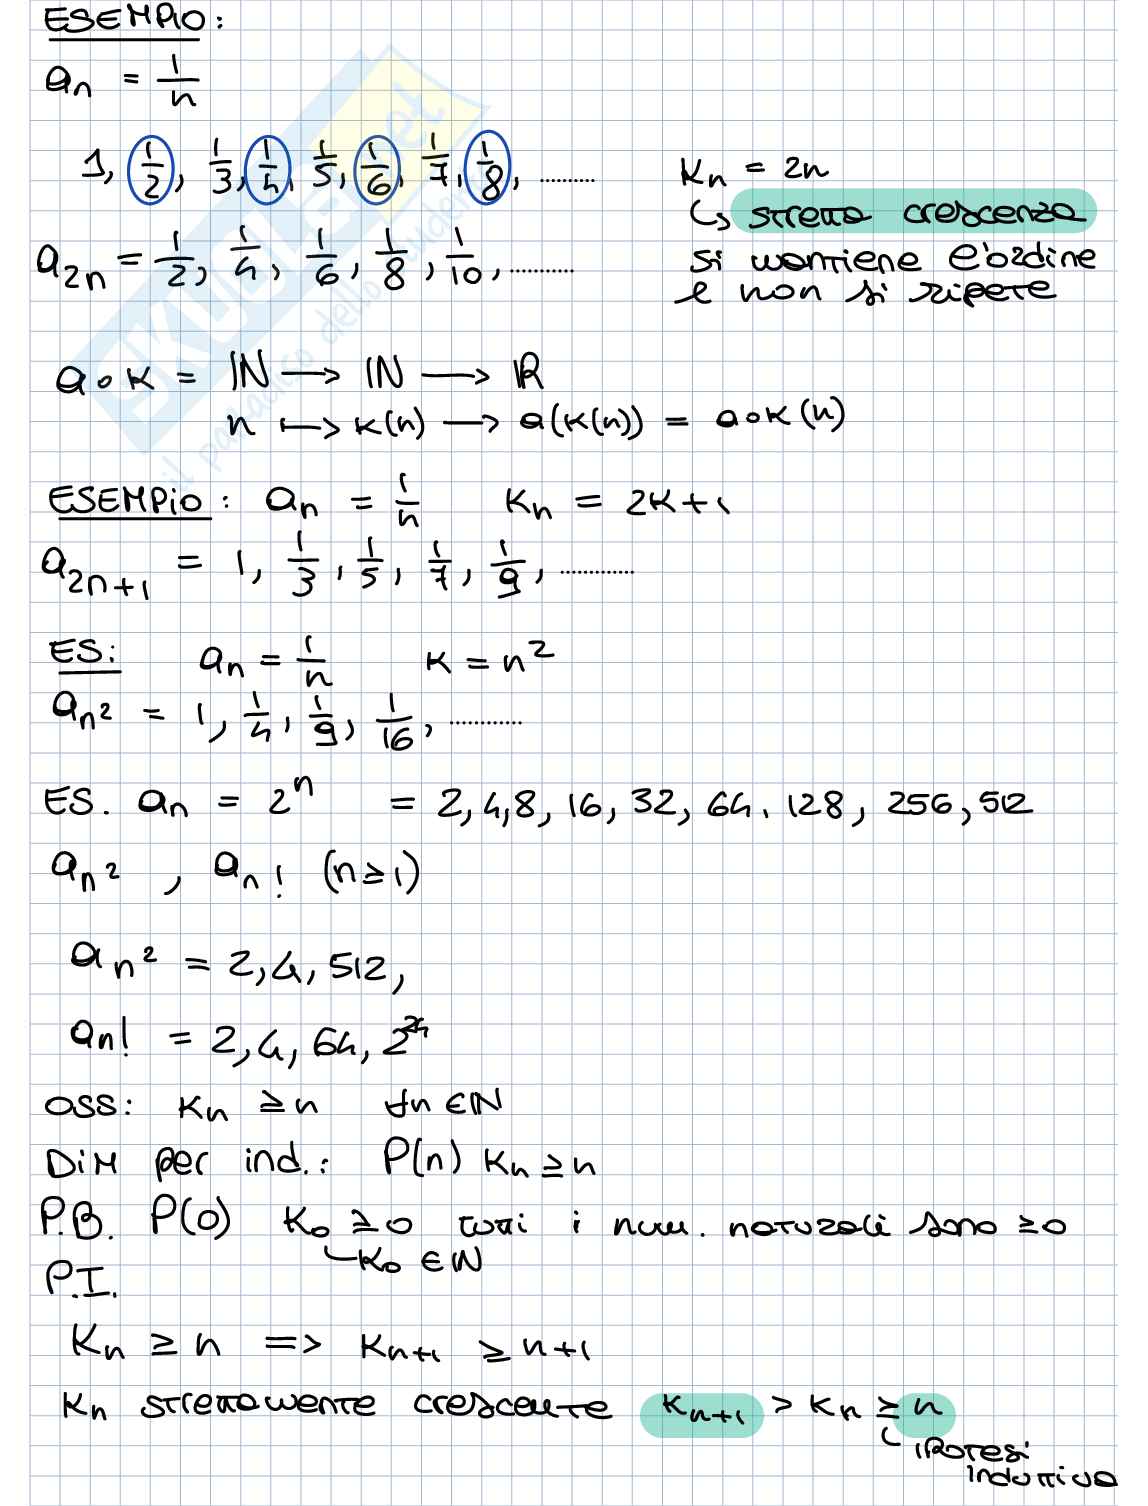 ESEMPIO:
an = 1/n
1, 1/2, 1/3, 1/4, 1/5, 1/6, 1/7, 1/8, ..........
Kn = 2n
↳ stretta crescenza
si mantiene l'ordine
e non si ripete
a2n = 1/2, 1/4, 1/6, 1/8, 1/10, ..........
a∘K = ℕ ⟶ ℕ ⟶ ℝ
n ⟼ K(n) ⟶ a(K(n)) = a∘K(n)
ESEMPIO: an = 1/n Kn = 2K+1
a2n+1 = 1, 1/3, 1/5, 1/7, 1/9, ............
ES: an = 1/n K = n²
an² = 1, 1/4, 1/9, 1/16, ............
ES. an = 2ⁿ = 2, 4, 8, 16, 32, 64, 128, 256, 512
an² , an! (n≥1)
an² = 2, 4, 512,
an! = 2, 4, 64, 2²⁴
OSS: Kn ≥ n ∀n ∈ ℕ
DIM per ind.: P(n) Kn ≥ n
P.B. P(0) K0 ≥ 0 tutti i num. naturali sono ≥ 0
K0 ∈ ℕ
P.I.
Kn ≥ n => Kn+1 ≥ n+1
Kn strettamente crescente Kn+1 > Kn ≥ n
ipotesi
induttiva
SKUOLA.net
il paradiso dello studente